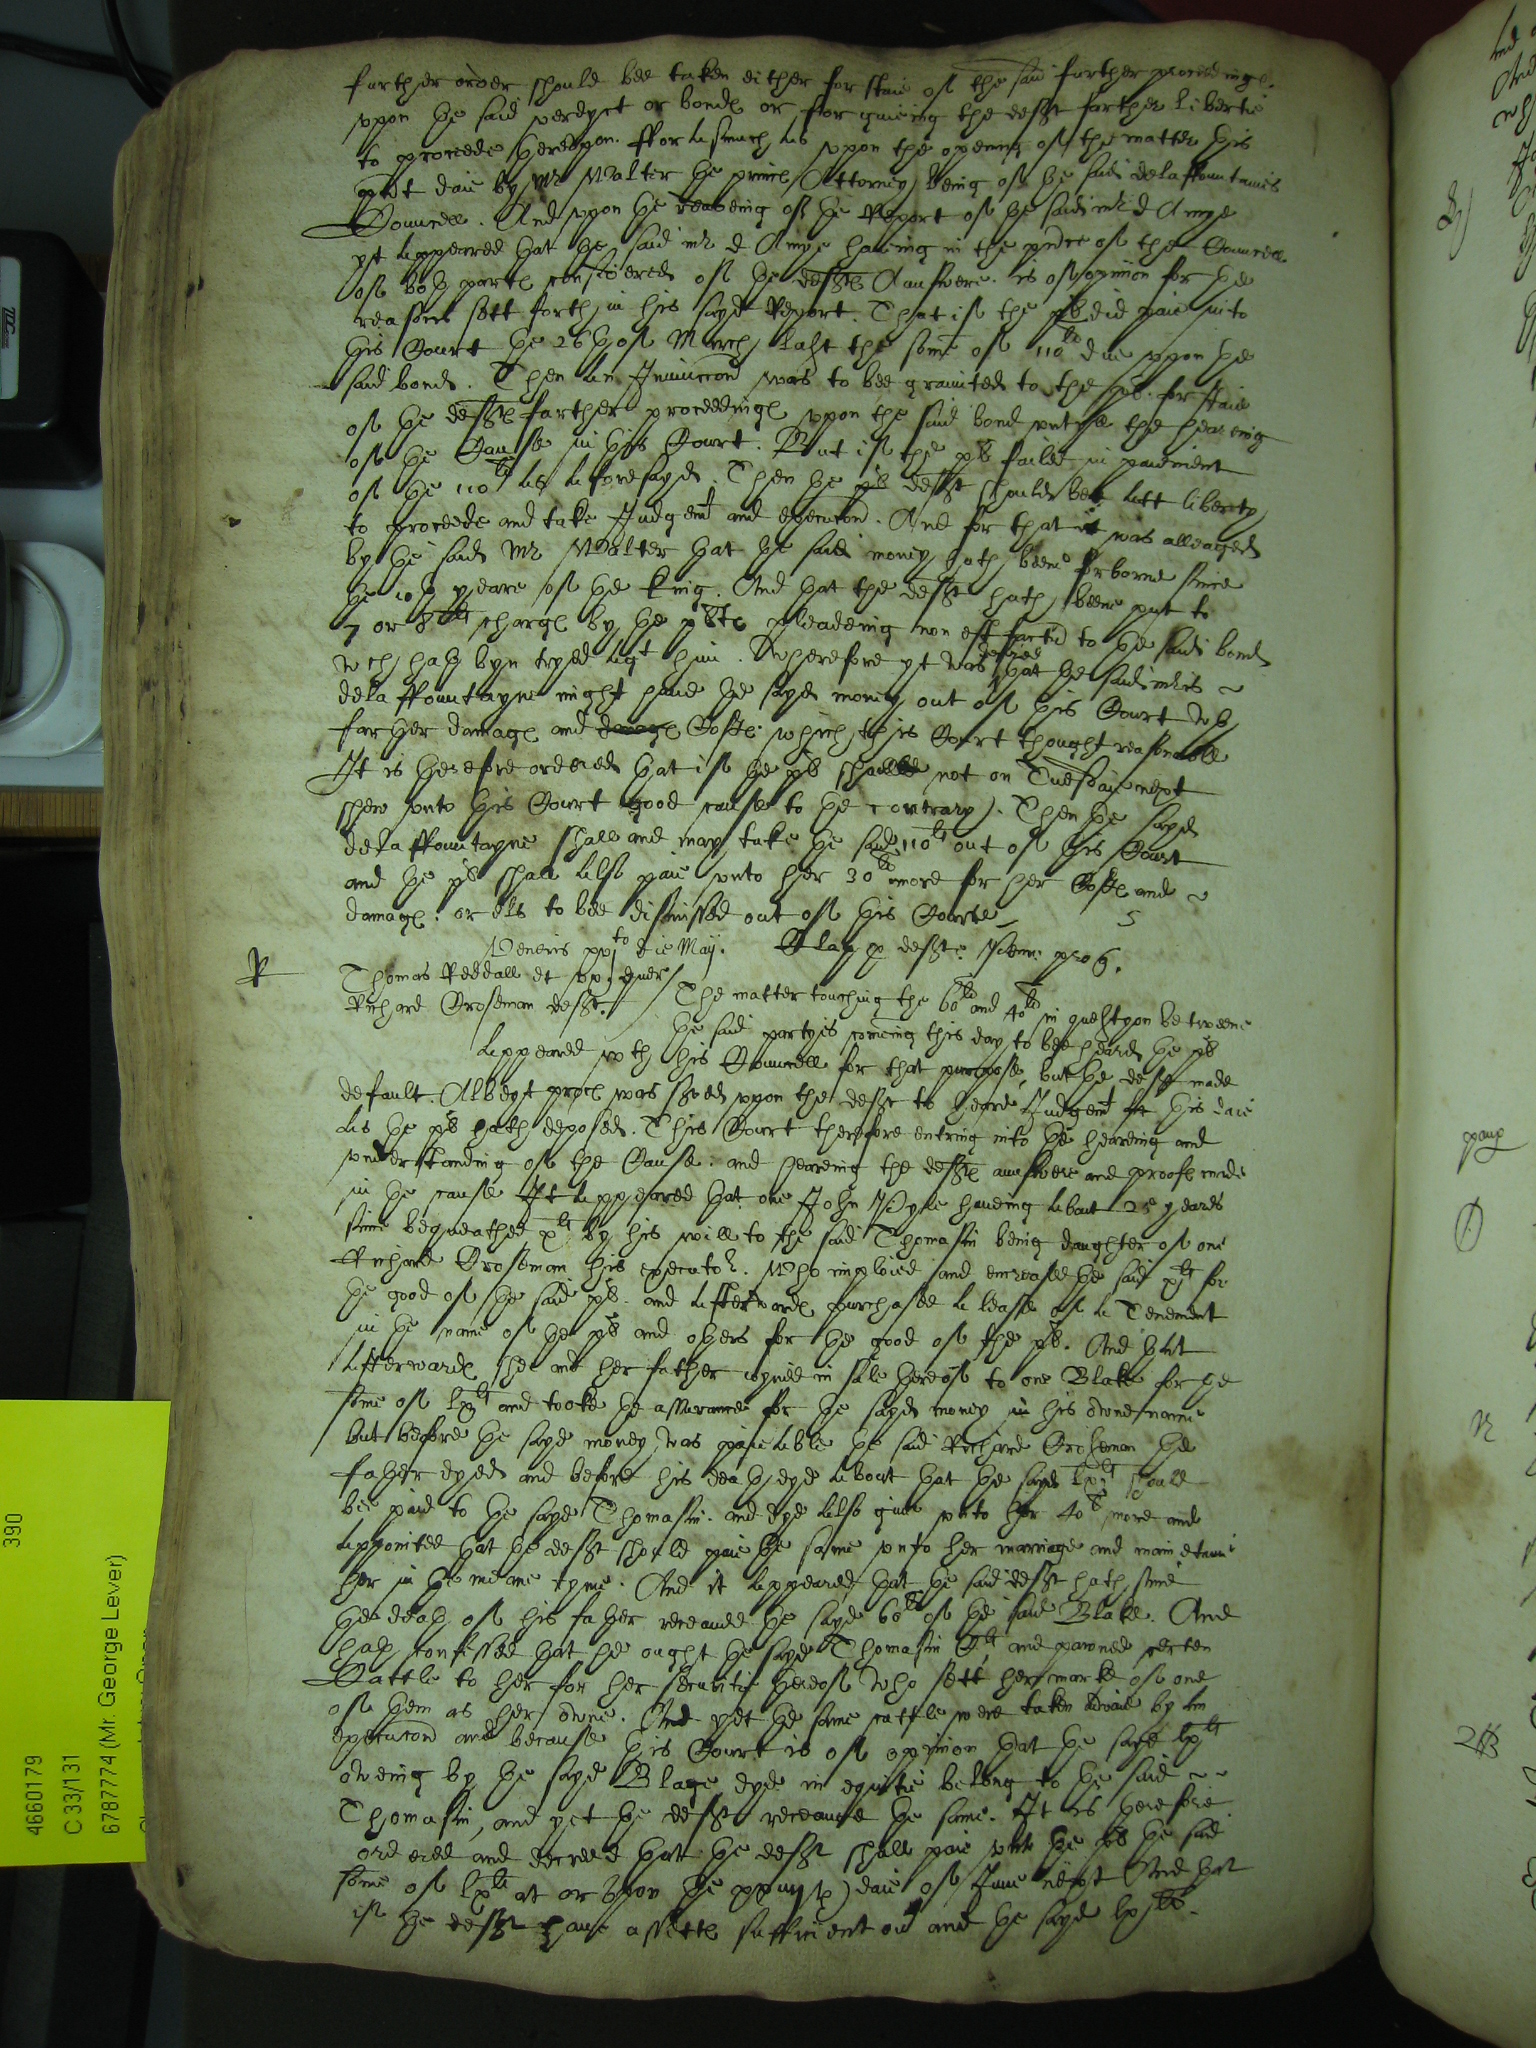 further order should bee taken either for staie of the said further proceedinge
vpon the said verdyct or bonde or for giueing the defft further libertie
to proceede therevpon. fforasmuch as vpon the opening of the matter this
pnt daie by Mr Walter the princes Attorney being of the said delaffountaines
Councell. And vpon the readeing of the Report of the said mr d Amye
yt appeared that the said mr d Amye haueing in the pnce of the Councell
of both partes considered of the deffts Aunswere. is of opinion for the
reasons sett forth in his sayd Report. That if the plt did paie into
this Court the 26th of March last the some of 110li due vpon the
said bond. Then an Iniunccon was to bee graunted to the plt. for staie
of the deffts further proceedinge vpon the said bond vntyll the heareing
of the Cause in this Court. But if the plt failed in paiement
of the 110li as aforesayd. Then the defft should bee att liberty
to proceede and take Iudgemt and execucon. And for that it was alleaged
by the said Mr Walter that the said money hath beene forborne since
the yeare of the king. And that the defft hath beene put to
7 or 8li charge by the plts pleadeing non est factu to the said bond
wch hath byn tryed agt him. Wherefore yt was desired that the said mris
delaffountayne might haue the sayd money out of this Court wth
further damage and Coste. which this Court thought reasonable
It is therefore ordered that if the plt shall not on Tuesdaie next
shew vnto this Court good cause to the contrary. Then the sayd
delaffountayne shall and may take the said 110li out of this Court
and the plt shall also paie vnto her 30li more for her Coste and
damage. or els to bee dismissed out of this Courte
Veneris xxjto die Maij.
R
Thomas Reddall et vx. quer
Richard Croseman defft.
The matter touching the 60li and 40s in questyon betweene
the said partyes comeing this day to bee heard the plt
appeared wth his Councell for that purpose, but the defft made
default. Albeyt proces was served vpon the defft to heare Iudgemt att this daie
as the plt hath deposed. This Court therefore entring into the heareing and
vnderstanding of the Cause. and heareing the deffts aunswere and proofe made
in the cause It appeared that one John Pyke haueing about 25 yeares
since bequeathed xli by his will to the said Thomasin being daughter of one
Richard Croseman his executor. Who imploied and encreased the said xli for
the good of the said plt. and afterwarde purchased a lease of a Tenement
in the name of the plt and others for the good of the plt. And that
afterwarde she and her father ioyned in sale thereof to one Blake for the
some of lxli and tooke the assurance for the sayd money in his owne name
but before the sayd money was paieable the said Richard Croseman the
father dyed and before his death dyd about that the sayd lxli should
bee paid to the sayd Thomasin. and dyd also giue vnto her 40s more and
appointed that the defft should paie the same vnto her marriage and mainetaine
her in the meane tyme. And it appeared that the said defft hath since
the death of his father receaued the sayd 60li of the said Blake. And
hath confessed that he ought the sayd Thomasin and pawned certen
Cattle to her for her securitie thereof who sett her marke of one
of them as her owne. And yet the same cattle were taken awaie by an
execucon and because this Court is of opinion that the sayd lxli
oweing by the sayd Blage dyd in equitie belong to the said
Thomasin, and yet the defft receaued the same. It is therefore
ordered and decreed that the defft shall paie vnto the plt the said
some of lxli at or vpon the daie of June next And that
if the defft haue assette sufficient and the sayd lxli.
390
46601179
C 33/131
6787774 (Mr. George Lever)